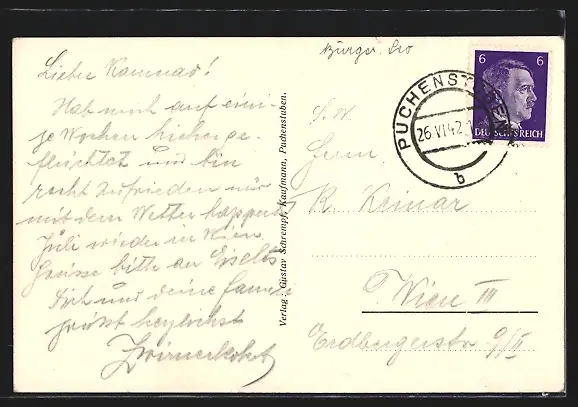 Lieber Kamerad!
Hab mich auf eini-
ge Wochen hieher ge-
flüchtet und bin
recht zufrieden nur
mit dem Wetter happerts
Juli wieder in Wien
Grüsse bitte an
Dich und deine Familie
grüsst herzlichst
Verlag: Gustav Schrempf, Kaufmann, Puchenstuben.
Bürger
6 6
DEUTSCHES REICH
PUCHENSTUBEN
26.VI.42
b
S. W.
Herrn
R. Keinar
Wien III
Erdbergerstr. 9/II